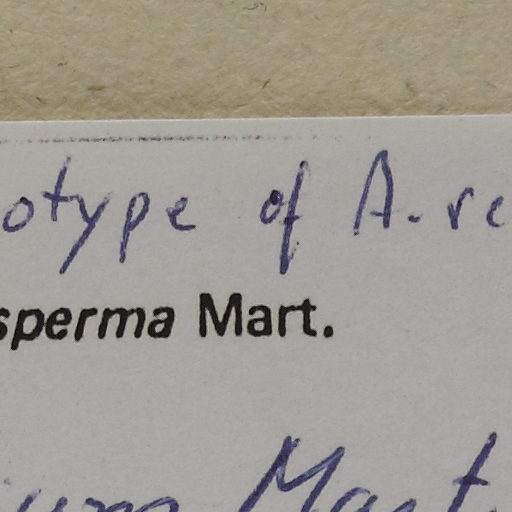 otype of A. re
sperma Mart.
ium Mart.